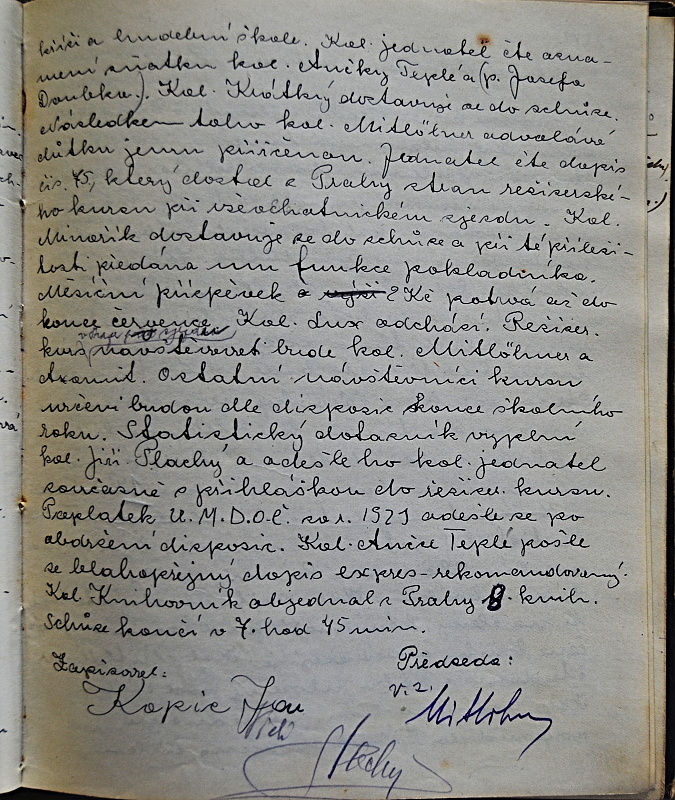 kříči a hudební škole. Kol. jednatel čte ozná-
mení sňatku kol. Aničky Teplé a (p. Josefa
Doubka.). Kol. Krátký dostavuje se do schůze.
Následkem toho kol. Mitlöhner odvolává
důtku jemu přiřčenou. Jednatel čte dopis
čís. 45, který dostal z Prahy stran režisérské-
ho kursu při všeochotnickém sjezdu. Kol.
Minořík dostavuje se do schůze a při té příleži-
tosti předána mu funkce pokladníka.
Měsíční příspěvek 2 Kč potrvá až do
konce července. Kol. Lux odchází. Režisér.
kurs navštěvovati bude kol. Mitlöhner a
Axamit. Ostatní návštěvníci kursu
určeni budou dle disposic konce školního
roku. Statistický dotazník vyplní
kol. Jiří Plachý a odešle ho kol. jednatel
současně s přihláškou do režisér. kursu.
Poplatek Ú. M. D. O. Č. za r. 1929 odešle se po
obdržení disposic. Kol. Anice Teplé pošle
se blahopřejný dopis expres-rekomandovaný.
Kol. Knihovník objednal z Prahy 8 knih.
Schůze končí v 7. hod 45 min.
Zapisovatel: Předseda:
v. z.
Kopic Jan Mitlöhner
Plachý